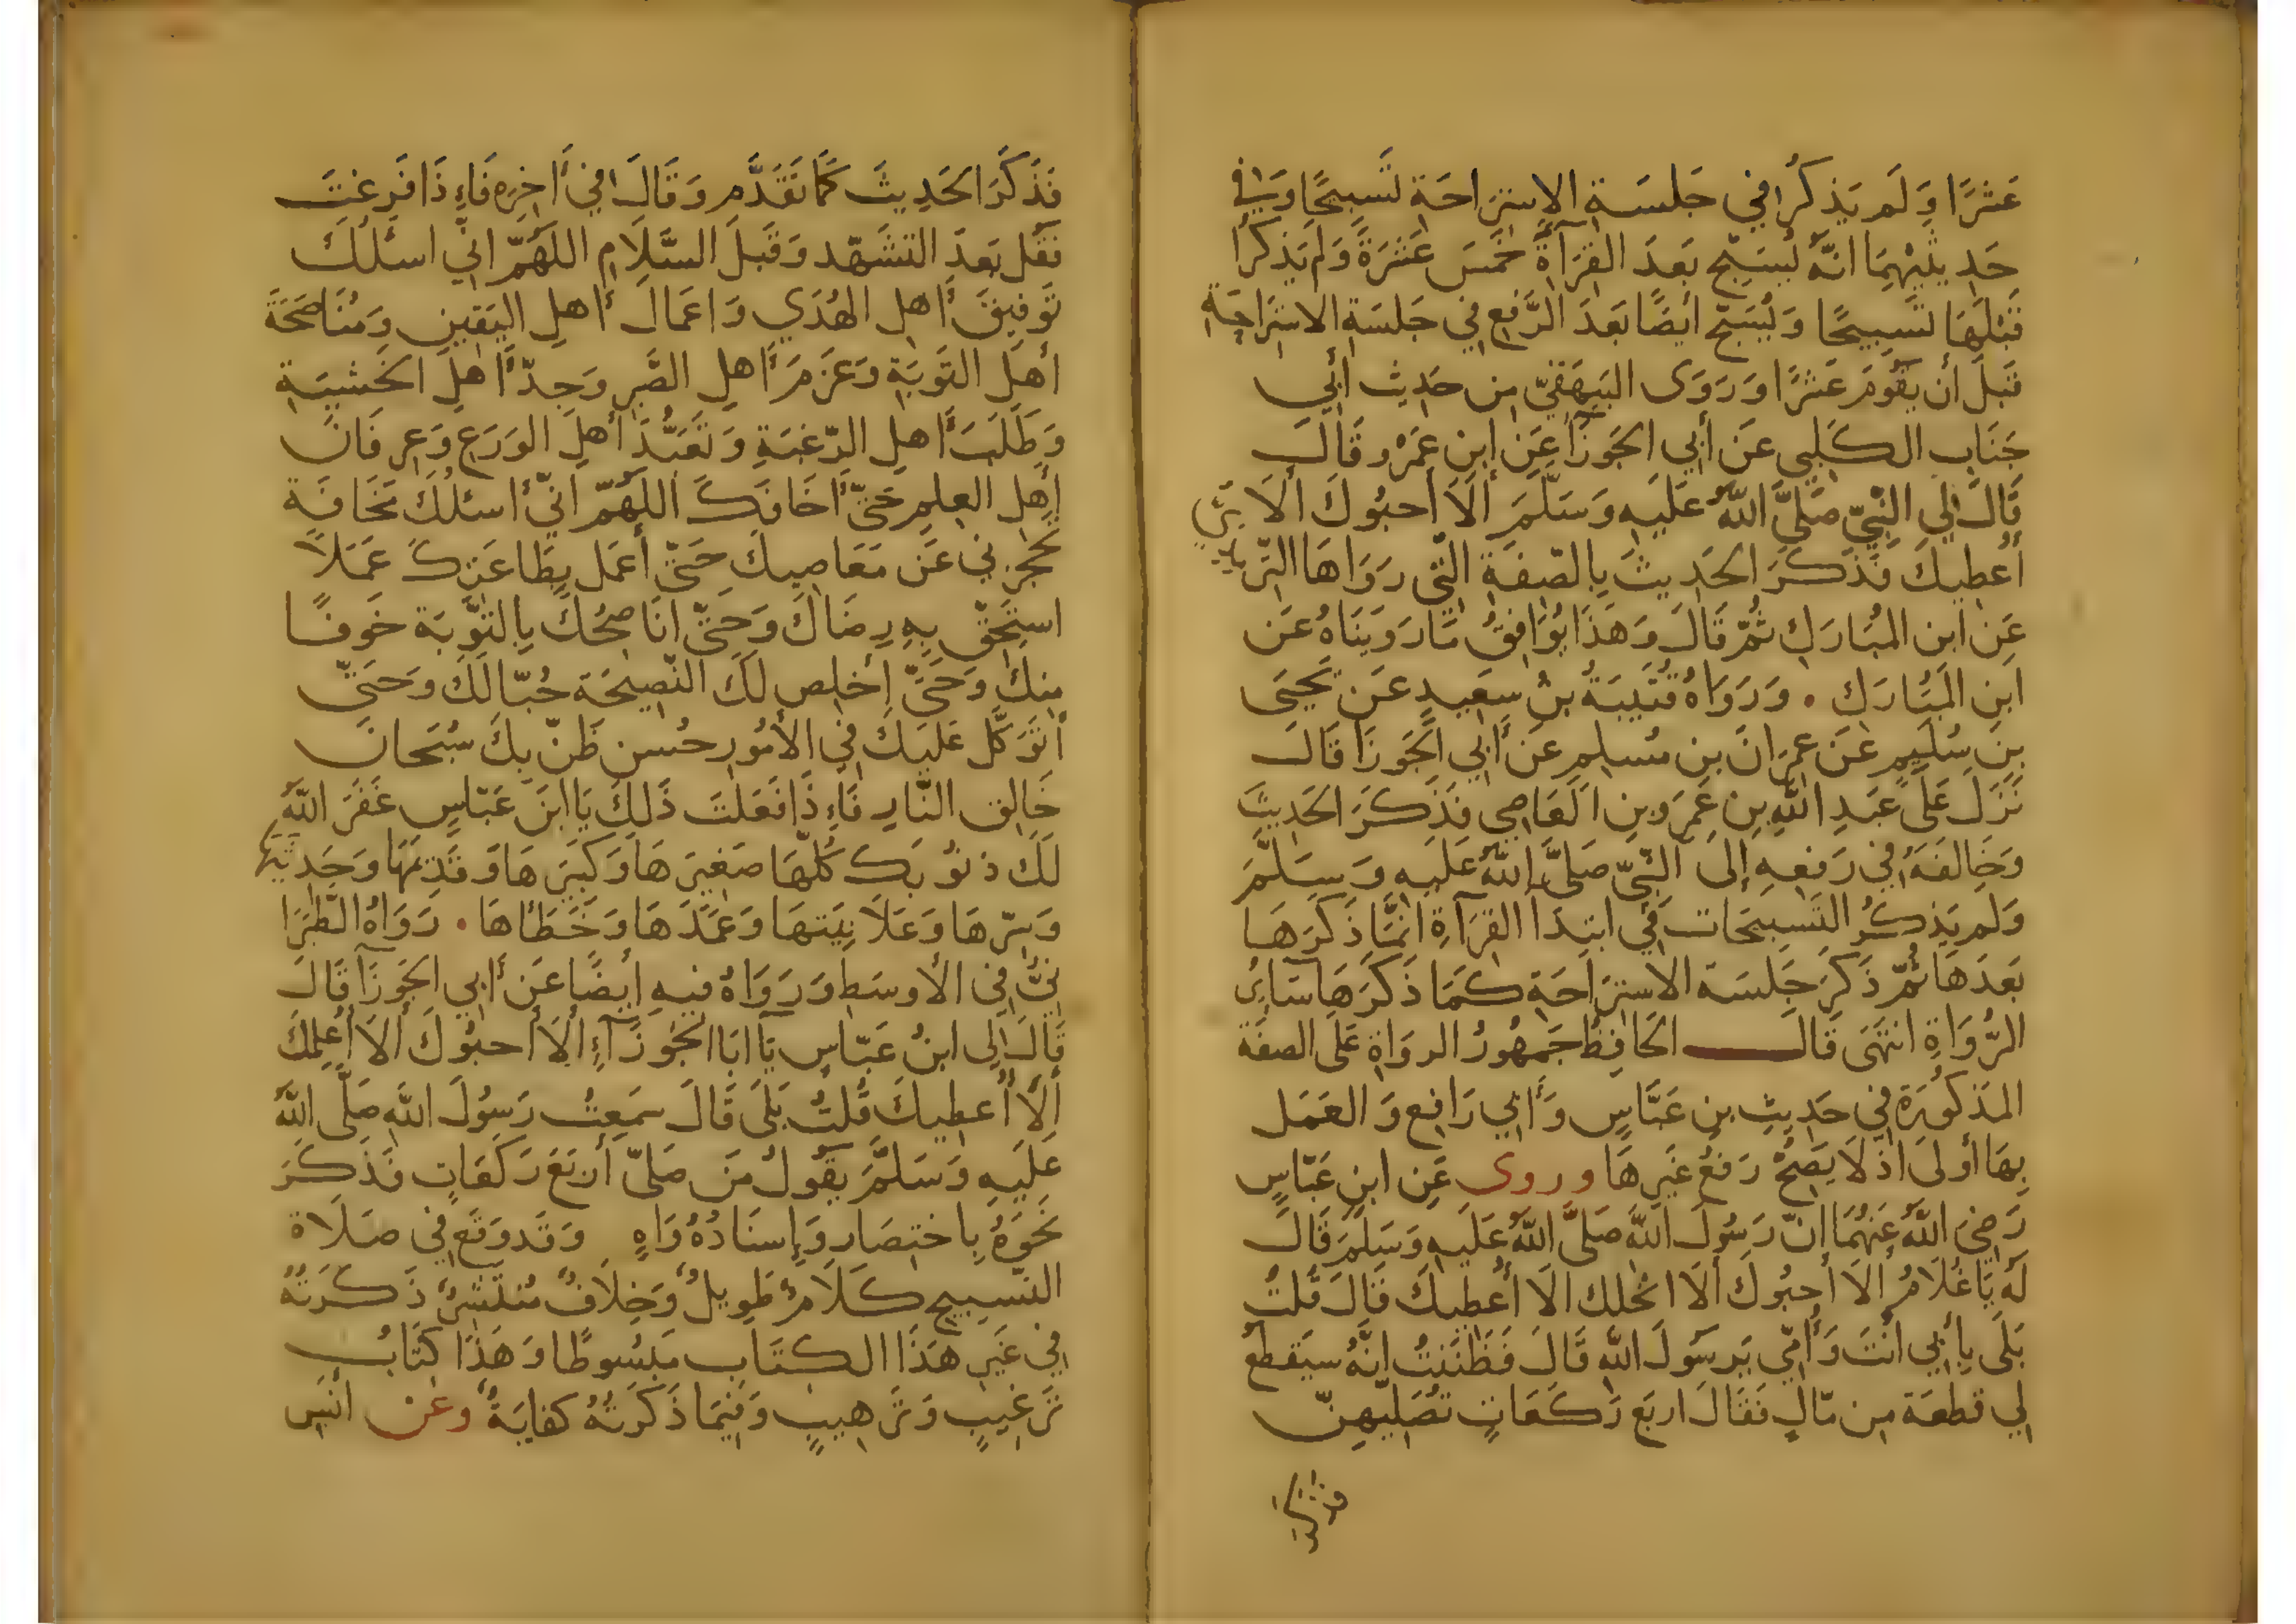 عَشرًا وَلَم يَذكُرا فِي جَلسَةِ الاِسِترَاحَةِ تَسبِيحًا وَفي
حَدِيثَيْهِمَا انَّهُ يُسَبِّحُ بَعدَ القِرَاةِ خَمسَ عَشَرَةً وَلَم يَذكُرا
قَبْلَهَا تَسبِيحًا وَيُسَبّح أيضًا بَعدَ الرَّفعِ فِي جَلسَةِ الاستِرَاحَةِ
قَبلَ أن يَقُومَ عَشرًا وَرَوَى البَيهَقِيّ مِن حَدِيثِ أبي
جَنَابِ الكَلبِي عَن أبي الجَوزَآ عَنِ ابنِ عَمرٍو قَالَ
قَالَ لِي النَّبِيّ صَلَّى اللهُ عَلَيهِ وَسَلَّمَ ألَا أحبُوكَ ألَا
أُعطِيكَ فَذَكَرَ الحَدِيثَ بِالصّفَةِ الّتِي رَوَاهَا التّرمِذِي
عَنِ ابنِ المُبَارَكِ ثُمّ قَالَ وَهَذَا يُوَافِقُ مَا رَوَينَاهُ عَن
ابنِ المُبَارَكِ . وَرَوَاهُ قُتَيبَةُ بنُ سَعِيدٍ عَن يَحيَى
بنِ سُلَيمٍ عَن عِمرَانَ بنِ مُسلِمٍ عَن أَبِي الجَوزَا قَالَ
نَزَلَ عَلَيَّ عَبدِ اللهِ بنِ عَمرَو بنِ العَاصِي فَذَكَرَ الحَدِيثَ
وَخَالَفَهُ فِي رَفعِهِ إلَى النَّبِيّ صَلَّى اللهُ عَلَيهِ وَسَلَّمَ
وَلَم يَذكُرُ التَّسبِيحَات فِي ابتِدَا القِرَآةِ انَّمَا ذَكَرَهَا
بَعدَهَا ثُمّ ذَكَرَ جَلسَة الاستِرَاحَةِ كَمَا ذَكَرَهَا سَايرُ
الرُّوَاةِ انتَهَى قَالَ الحَافِظُ جَمهُورُ الرواةِ عَلَى الصفَة
المَذكُورَةِ فِي حَدِيثِ بنِ عَبَّاسٍ وَأَبِي رَافِعٍ وَ العَمَل
بِهَا أولَى اذ لَا يَصِحُّ رَفعُ غَيرِهَا وروى عَنِ ابنِ عَبّاسٍ
رَضِيَ اللهُ عَنهُمَا إنّ رَسُولَ اللهِ صَلَّى اللهُ عَلَيهِ وَسَلّمَ قَالَ
لَهُ يَا غُلَامُ ألَا أحبُوكَ ألَا انحلك الَا أُعطِيكَ قَالَ قُلتُ
بَلَى بِأبِي أنتَ وَأُمّي يَرسُولَ اللهِ قَالَ فَظَنَنتُ انَّهُ سَيَقطَعُ
لِي قطعَة مِن مّالٍ فَقَالَ اربَع رَكَعَاتٍ تُصَلِّيهِنّ
فذكر
فَذَكَرَ الحَدِيثَ كَمَا تَقَدَّمِ وَقَالَ فِي أخِرِه فَاءِذَا فَرَغتَ
فَقُل بَعدَ التشَهّد وَقَبلَ السَّلَامِ اللهُمّ انّي اسئَلُكَ
تَوفِيقَ أهلِ الهُدَي وَاعمَالَ أهلِ اليَقِينِ وَمُنَاصَحَةَ
أهلِ التَوبَةِ وَعَزمَ أهلِ الصَّبرِ وَجِدّ أهلِ الخَشيَةِ
وَطَلَبَ أهلِ الرّغبَةِ وَتَعَبُّدَ أهلِ الوَرَعِ وَعِرفَانَ
أهلِ العِلمِ حَتّي أخَافَكَ اللهُمّ انّي أسئلُكَ مَخَافَةً
تَحجزُني عَن مَعَاصِيكَ حَتّي أعمَل بِطَاعَتِكَ عَمَلاً
استَحِقّ بِهِ رِضَاكَ وَحَتّي انَاصِحُكَ بِالتّوبَة خَوفًا
مِنكَ وَحَتّيَ أخلِص لَكَ النّصِيحَة حُبّا لَكَ وَحَتّي
أتَوَكَّل عَلَيكَ فِي الأمُورِ حُسن ظَنّ بِكَ سُبحَانَ
خَالِقِ النّارِ فَاءِذَا فَعَلتَ ذَلِكَ يَا ابنَ عَبّاسٍ غَفَرَ اللهُ
لَكَ ذنُوبَكَ كُلّهَا صَغِيرَهَا وَكَبِيرَهَا وَقَدِيمَهَا وَحَدِيثَهَا
وَسِرّهَا وَعَلَانِيَتهَا وَعَمَدَهَا وَخَطَاهَا . رَوَاهُ الطّبَرَا
نِيُّ فِي الأوسَطِ وَرَوَاهُ فِيهِ أيضًا عَن أبِي الجَوزَآ قَالَ
قَالَ لِي ابنُ عَبّاسٍ يَا ابَا الجَوزَآءِ ألَا أحبُوكَ ألَا أُعلِمُكَ
ألَا أُعطِيكَ قُلتُ بَلَى قَالَ سَمِعتُ رَسُولَ اللهِ صَلَّى اللهُ
عَلَيهِ وَسَلَّمَ يَقُولُ مَن صَلّى أربَعَ رَكَعَاتٍ فَذَكَرَ
نَحوَهُ بِاختِصَارٍ وَإسنَادُهُ وَاهٍ وَقَد وَقَع فِي صَلَاة
التّسبِيحِ كَلَامٌ طَوِيلٌ وَخِلَافٌ مُنتَشِرٌ ذَكَرتُهُ
فِي غَيرِ هَذَا الكِتَابِ مَبسُوطًا وَهَذَا كِتَابُ
تَرغِيبٍ وَتَرهِيبٍ وَفِيمَا ذَكَرتُهُ كفايَةٌ وعن انَسِ